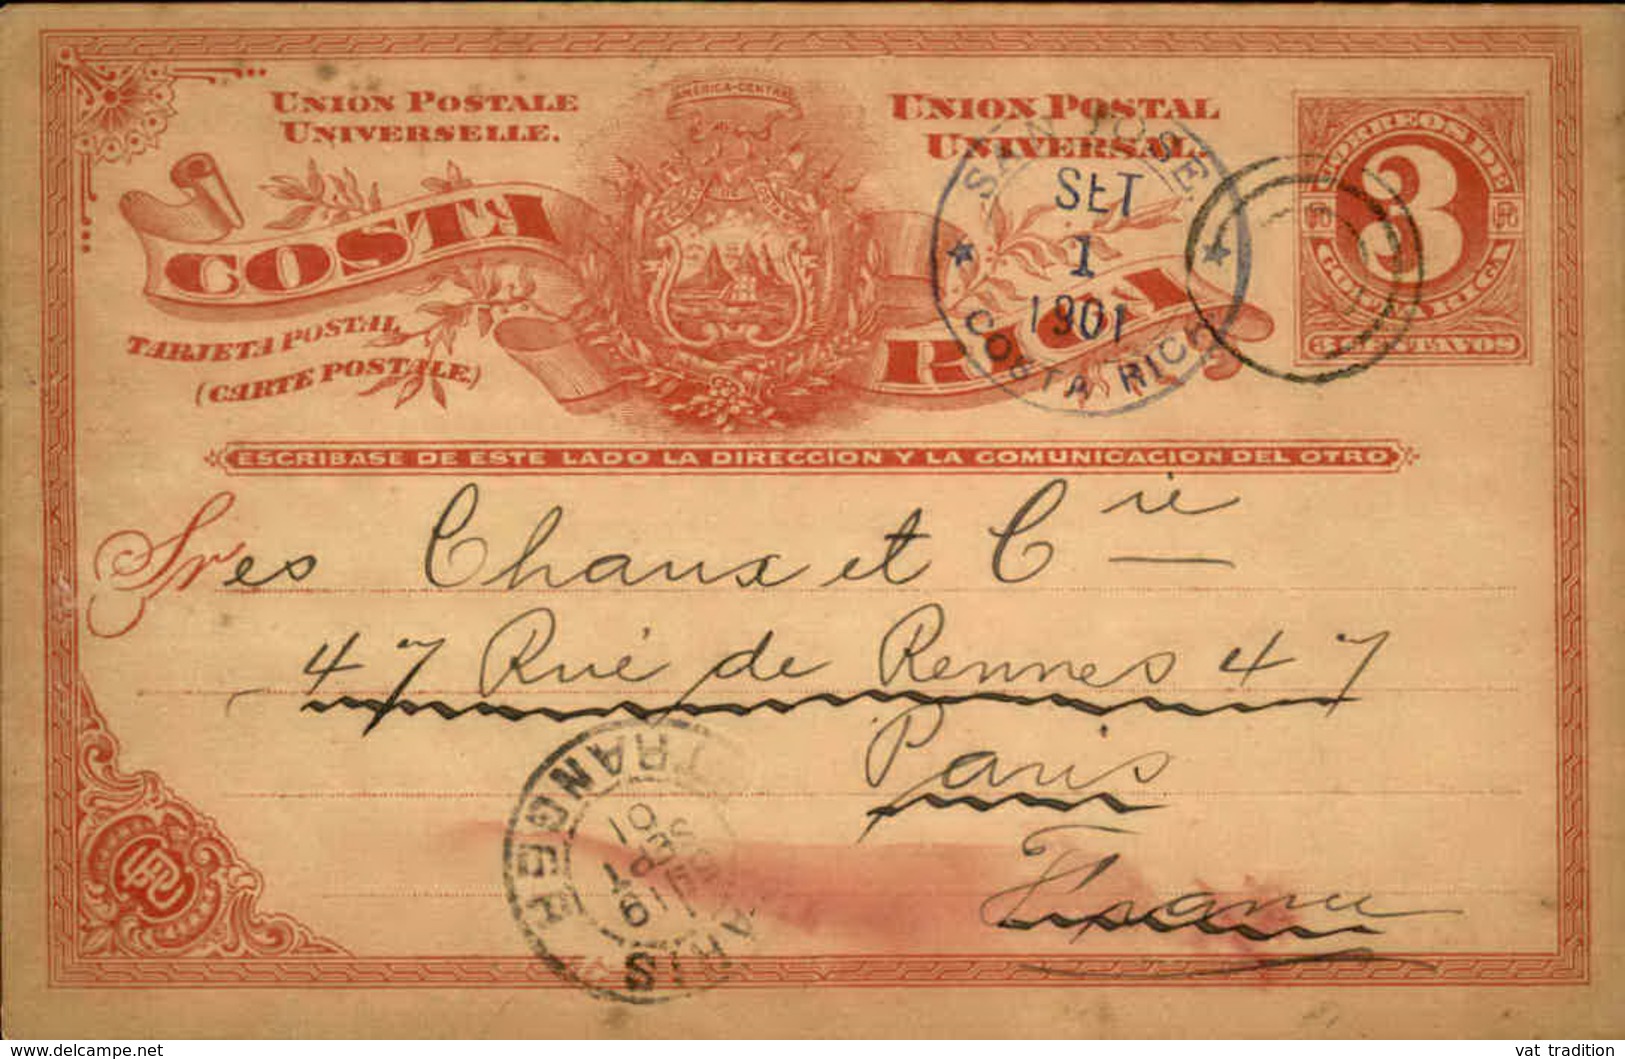 AMÉRICA-CENTRAL
UNION POSTALE
UNIVERSELLE.
UNION POSTAL
UNIVERSAL.
CORREOS DE
3
COSTA RICA
3 CENTAVOS
COSTA RICA
TARJETA POSTAL
(CARTE POSTALE.)
SAN JOSE.
SET
1
1901
COSTA RICA
ESCRIBASE DE ESTE LADO LA DIRECCION Y LA COMUNICACION DEL OTRO
Sres Chaux et Cie
47 Rue de Rennes 47
Paris
France
PARIS
ETRANGER
01
www.delcampe.net
vat_tradition